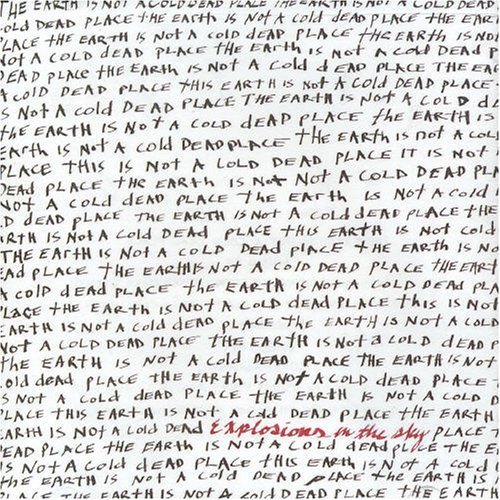 THE EARTH IS NOT A COLD DEAD PLACE THE EARTH IS NOT A COLD DEAD
old DEAD PLACE the EARTH IS Not A Cold DEAD PLACE the EAR
LACE tHE EARTH IS NOT A cold DEAD PLACE tHE EARth IS NO
Not A COLD DEAD PLACE THE EARth is not A cold DEAD P
DEAD PLACE tHE EARth IS Not A Cold dEAD PLACE tHE EA
A cold DEAD PLACE tHIS EARtH IS Not A Cold DEAD PLACE
S Not A cold DEAD PLACE THE EARtH IS NOT A COLD d
the EARTH IS NOT A COLD dEAD PLACE tHE EARtH IS
EArth IS Not A cold DEADPLACE THE EARth is not A col
PLACE THIS IS NOT A LOLD DEAD PLACE IT IS NOT
DEAD PLACE tHE EARTH IS Not Not A COLD DEAD PL
NOT A COLD DEAD PLACE the EARtH IS Not A cold
D DEAD pLACE THE EARTH IS NOT A COLD dEAD PLACE tHE
RTH IS Not A Cold DEAD PLACE tHIS EARTH IS NOt cold
THE EARTH IS Not A COLD DEAD plACE tHE EARTH IS N
EAD PLACE THE EARTHIS Not A COLD DEAD PLACE tHE EART
A COLD dEAD PLACE tHE EARTH IS Not A COLD DEAD PLA
LACE tHE EARTH IS NOT A COLD DEAD PLACE tHIS IS NOT
EARTH IS NOt A Cold DEAD PLACE tHE EARTH IS Not A COLD
NOT A COLD DEAD PLACE THE EARTH IS NOT A COLD dEAD P
tHE EARTH IS NOT A cold DEAD PLACE THE EARTH IS NOT
old dead PLACE tHE EARTH IS NOT A COLD DEAD PLACE
S NOT A COLD dEAD PLACE tHE EARtH IS NOT A COLD
PLACE tHIS EARTH IS NOt A cold DEAD PLACE tHE EARTH
EARTH IS NOT A cold DEAD Explosions in the sky PLACE T
EAD PLACE tHE EARTH IS NOTA Cold dEADpLACE tHE E
IS Not A COLD DEAD PLACE tHIS EARtH IS Not A COLD
THE EARTH IS NOT A COLD DEAD PLACE tHE EARTH IS
PLACE tHE EARTH IS NOT A COLD DEAD PLACE tHE EARTH